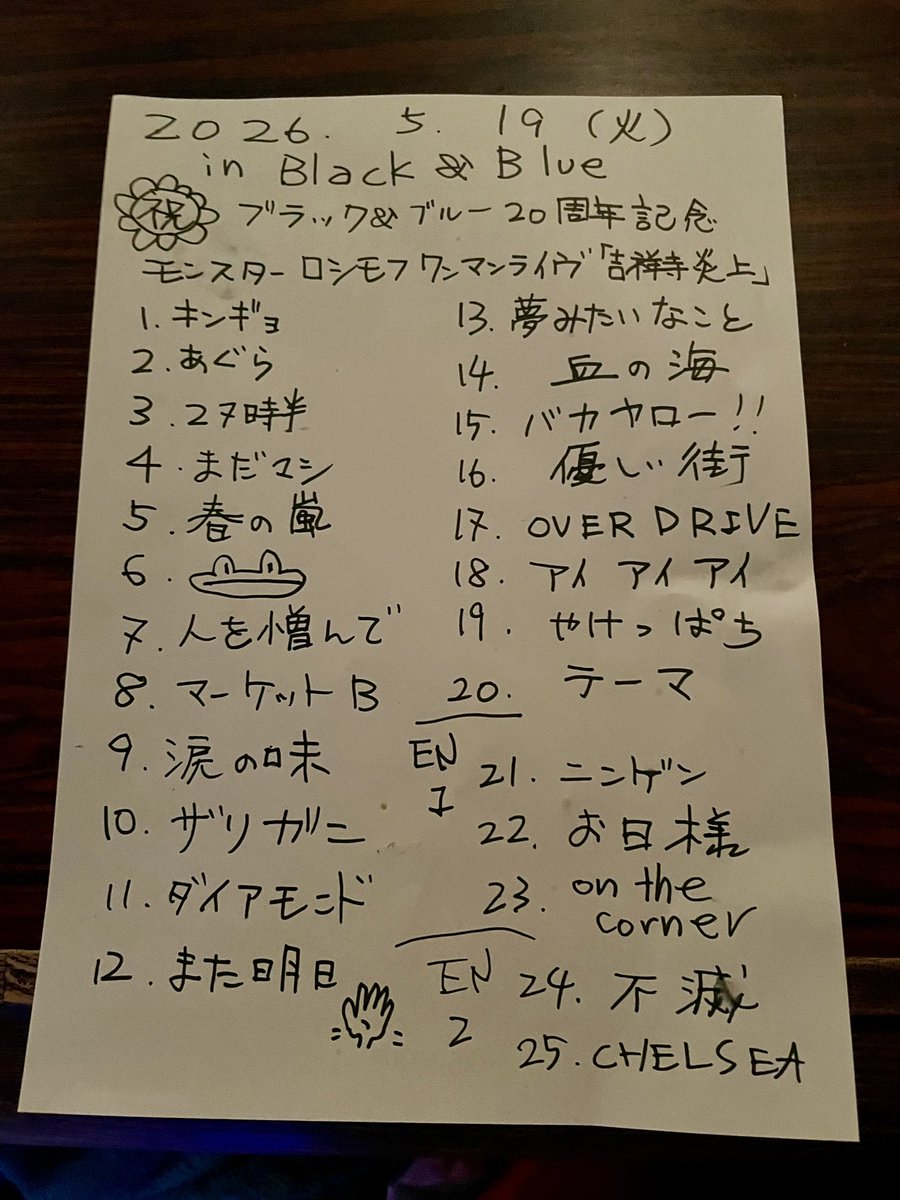 2026. 5. 19 (火)
in Black & Blue
祝 ブラック&ブルー20周年記念
モンスターロシモフワンマンライヴ「吉祥寺炎上」
1. キンギョ
2. あぐら
3. 27時半
4. まだマシ
5. 春の嵐
6.
7. 人を憎んで
8. マーケットB
9. 涙の味
10. ザリガニ
11. ダイアモンド
12. また明日
13. 夢みたいなこと
14. 血の海
15. バカヤロー!!
16. 優しい街
17. OVER DRIVE
18. アイ アイ アイ
19. やけっぱち
20. テーマ
EN 1
21. ニンゲン
22. お日様
23. on the
corner
EN 2
24. 不滅
25. CHELSEA